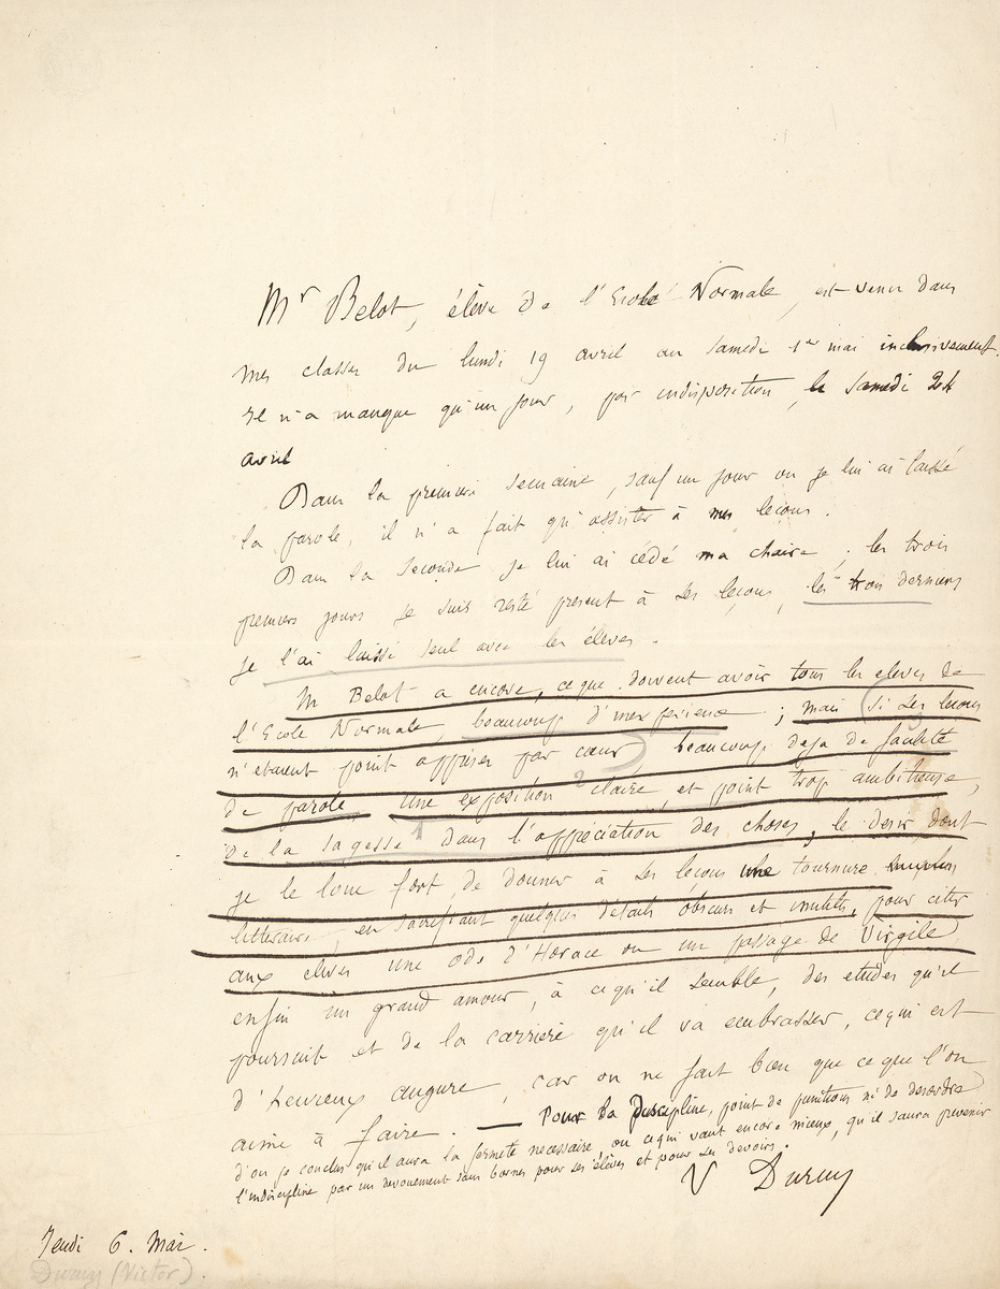 Mr Belot, élève de l'Ecole Normale, est venu dans
mes classes du lundi 19 avril au samedi 1er mai inclusivement.
Il n'a manqué qu'un jour, par indisposition, le samedi 24
avril
Dans la première semaine, sauf un jour où je lui ai laissé
la parole, il n'a fait qu'assister à mes leçons.
Dans la seconde je lui ai cédé ma chaire ; les trois
premiers jours je suis resté présent à ses leçons, les trois derniers
je l'ai laissé seul avec les élèves.
Mr Belot a encore, ce que doivent avoir tous les eleves de
l'Ecole Normale, beaucoup d'inexpérience ; mais (si ses leçons
n'etaient point apprises par cœur) beaucoup deja de facilité
de parole, une exposition 2 claire, et point trop ambitieuse,
de la sagesse 1 dans l'appréciation des choses, le desir, dont
je le loue fort, de donner à ses leçons une tournure
litteraire, en sacrifiant quelques détails obscurs et inutiles, pour citer
aux elèves une ode d'Horace ou un passage de Virgile
enfin un grand amour, à ce qu'il semble, des etudes qu'il
poursuit et de la carrière qu'il va embrasser, ce qui est
d'heureux augure, car on ne fait bien que ce que l'on
aime à faire. — Pour la Discipline, point de punitions ni de desordre
d'ou je conclus qu'il aura la fermeté necessaire, ou ce qui vaut encore mieux, qu'il saura prevenir
l'indiscipline par un devouement sans bornes pour ses élèves et pour ses devoirs.
V Duruy
Jeudi 6. Mai.
Duruy (Victor).